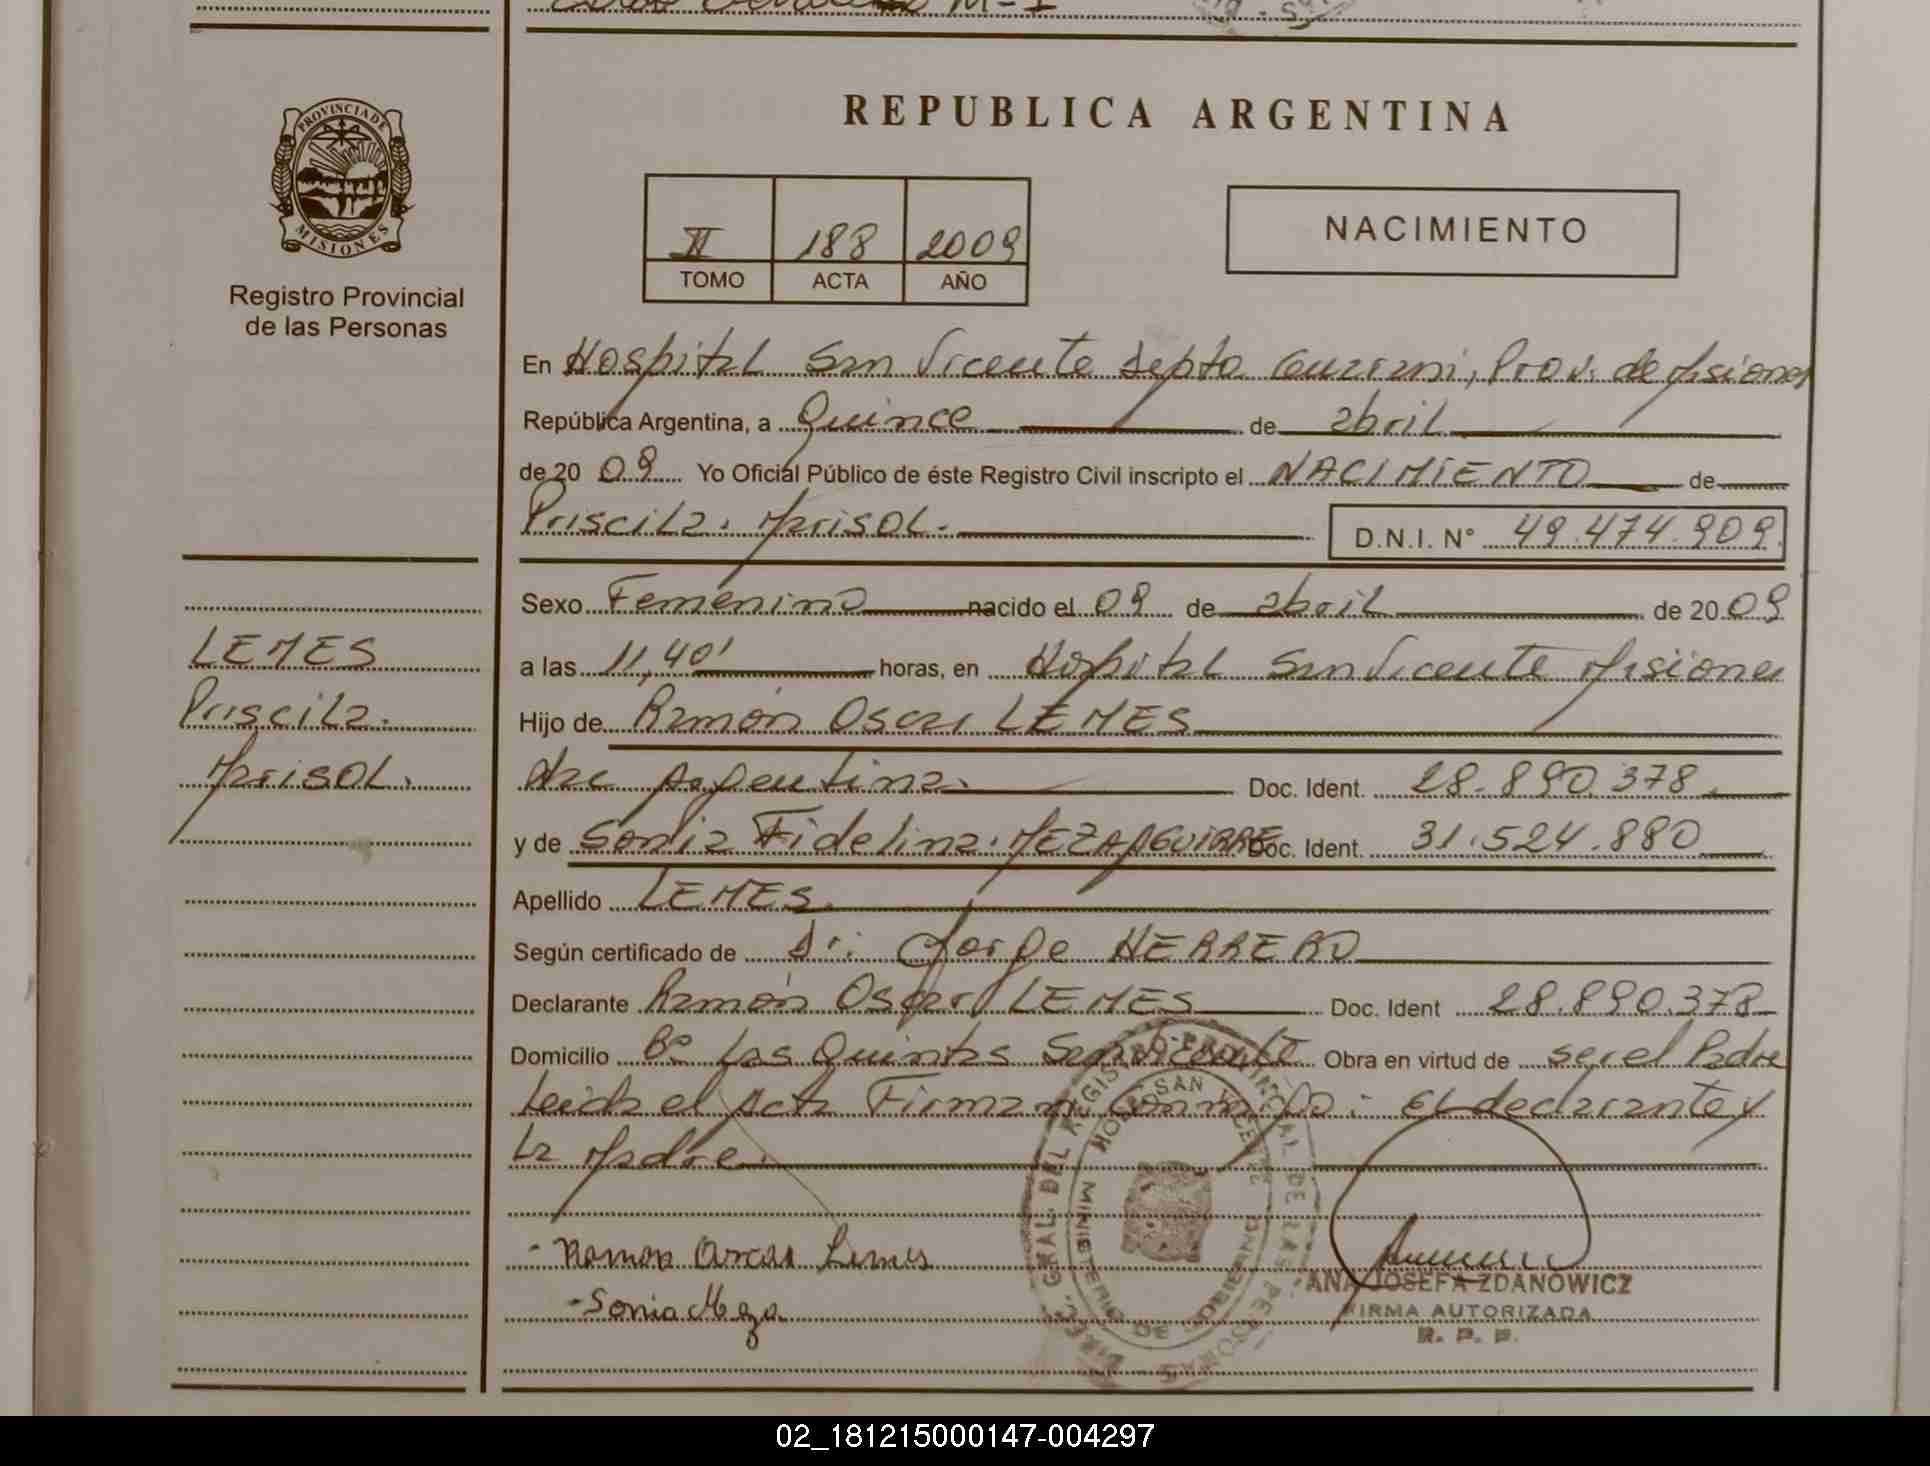 PROVINCIA DE
MISIONES
Registro Provincial
de las Personas
LEMES
Priscila.
Marisol.
REPUBLICA ARGENTINA
II 188 2009
TOMO ACTA AÑO
NACIMIENTO
En Hospital San Vicente Depto Guarani, Prov. de Misiones
República Argentina, a Quince de abril
de 20 09 Yo Oficial Público de éste Registro Civil inscripto el NACIMIENTO de
Priscila. Marisol. D.N.I. N° 49.474.909.
Sexo Femenino nacido el 09 de abril de 20 09
a las 11,40' horas, en Hospital San Vicente Misiones
Hijo de Ramón Oscar LEMES
Argentina. Doc. Ident. 28.890.378
y de Sonia Fidelina. MEZA AGUIRRE Doc. Ident. 31.524.880
Apellido LEMES.
Según certificado de Dr. Jorge HERRERO
Declarante Ramón Oscar LEMES Doc. Ident 28.890.378
Domicilio B° Las Quintas San Vicente Obra en virtud de ser el Padre
Leida el Acta Firman conmigo: El declarante y
La Madre.
- Ramon Oscar Lemes
- Sonia Meza
DIREC. GRAL. DEL REGISTRO PROVINCIAL DE LAS PERSONAS
HOSP. SAN VICENTE
MINISTERIO DE GOBIERNO
ANA JOSEFA ZDANOWICZ
FIRMA AUTORIZADA
R. P. P.
02_181215000147-004297